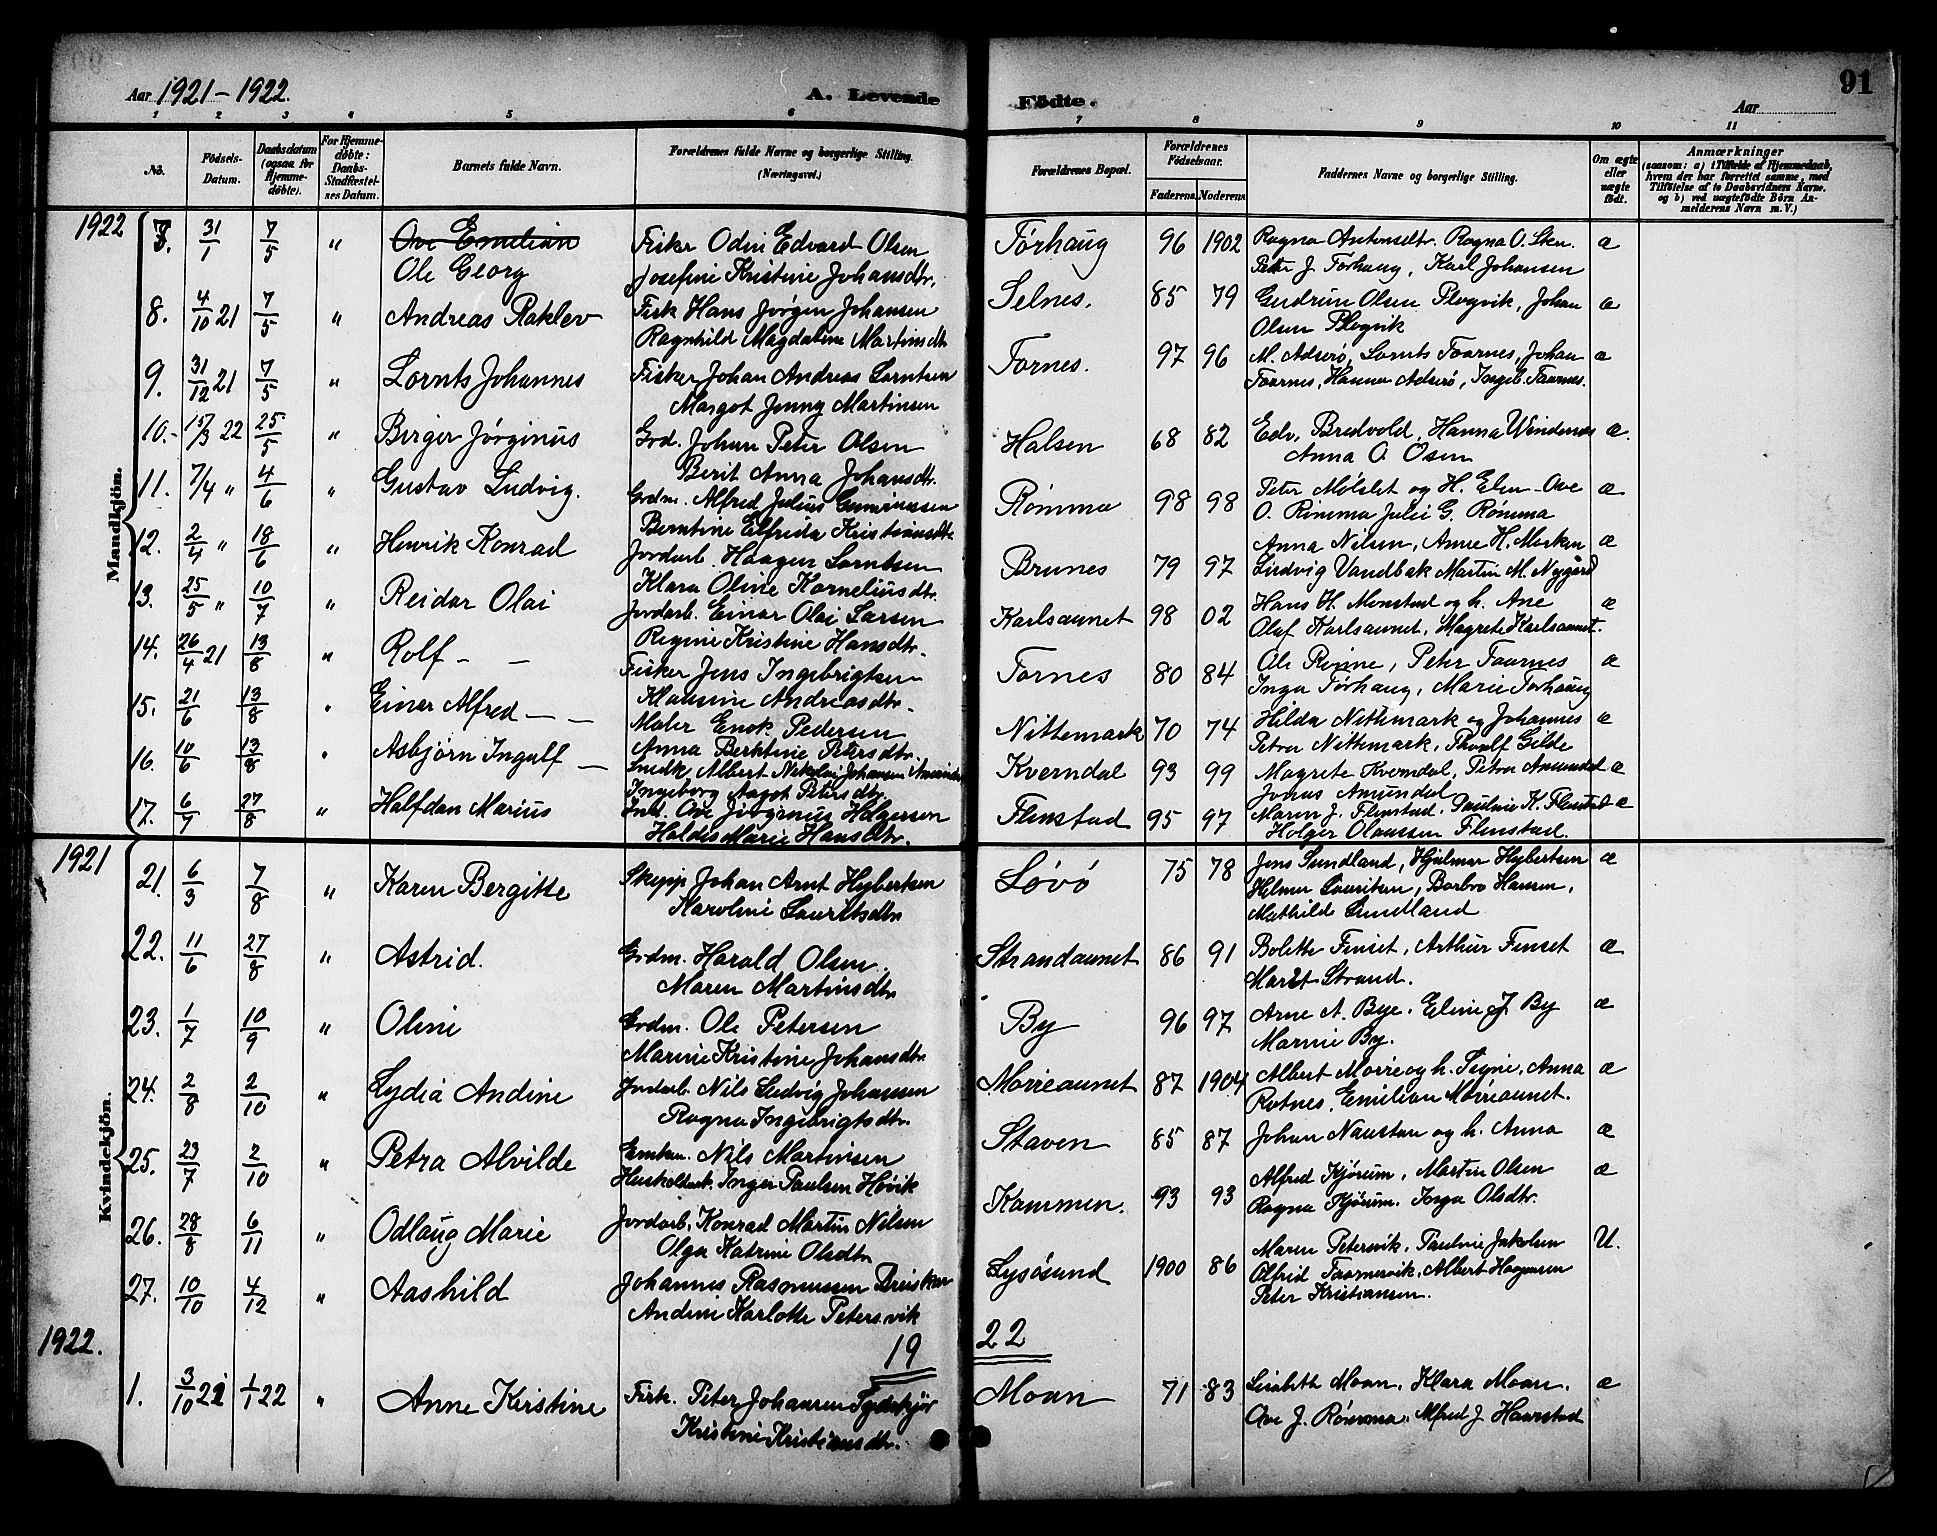 Aar 1921-1922. A. Levende Fødte. Aar 91
1 2 3 4 5 6 7 8 9 10 11
No. Fødsels-Datum. Daabsdatum (ogsaa for Hjemmedøbte). For Hjemmedøbte: Daabs-Stadfæstelses Datum. Barnets fulde Navn. Forældrenes fulde Navne og borgerlige Stilling. (Næringsvei.) Forældrenes Bopæl. Forældrenes Fødselsaar. Faderens Moderens Faddernes Navne og borgerlige Stilling. Om ægte eller uægte født. Anmærkninger (saasom: a) i Tilfælde af Hjemmedaab, hvem der har forrettet samme, med Tilføielse af to Daabsvidners Navne. og b) ved uægtefødte Børn Anmelderens Navn m. V.)
Mandkjön.
1922 7. 31/1 7/5 " Ove Emilian Fisker Odin Edvard Olsen Tørhaug 96 1902 Ragna Antonsdtr. Ragna O. Sten. æ
Ole Georg Josefine Kristine Johansdtr. Peter J. Tørhaug, Karl Johansen
8. 4/10 21 7/5 " Andreas Raklev Fisk Hans Jørgen Johansen Selnes. 85 79 Gudrun Olsen Plogvik, Johan æ
Ragnhild Magdalene Martinsdtr Olsen Plogvik
9. 31/12 21 7/5 " Lornts Johannes Fisker Johan Andreas Lorntsen Tornes. 97 96 M. Adserø, Lornts Taarnes, Johan æ
Margot Jenny Martinsen Taarnes, Hanna Adserø, Ingeb. Taarnes.
10.- 15/3 22 25/5 " Birger Jørginus Grd. Johan Peter Olsen Halsen 68 82 Edv. Bredvold, Hanna Windenes æ.
Berit Anna Johansdtr. Anna O. Osen
11. 7/4 " 4/6 " Gustav Ludvig. Grdm. Alfred Julius Guneriussen Rømma 98 98 Peter Mølslet og H. Elen - Ove æ
Berntine Elfrida Kristiansdtr O. Rømma Julie G. Rømma
12. 2/4 " 18/6 " Henrik Konrad Jordarb. Haagen Lorntsen Brunes 79 97 Anna Nilsen, Anne H. Morken æ
Klara Oline Korneliusdtr. Ludvig Vandbak Martin M. Nygård
13. 25/5 " 10/7 " Reidar Olai Jordarb. Einar Olai Larsen Karlsaunet 98 02 Hans H. Monstad og h. Ane æ
Regine Kristine Hansdtr. Oluf Karlsaunet, Magrete Karlsaunet.
14. 26/4 21 13/8 " Rolf - - Fisker Jens Ingebrigtsen Tornes 80 84 Ole Rønne, Peter Taarnes æ
Klausine Andreasdtr. Inga Tørhaug, Marie Tørhaug
15. 21/6 13/8 " Einar Alfred - - Maler Enok Pedersen Nittemark 70 74 Hilda Nittemark og Johannes æ
Anna Berntine Petersdtr. Petra Nittemark. Thoralf Gilde
16. 10/6 13/8 " Asbjørn Ingulf - Snedk. Albert Nikolai Johansen Amundal Kverndal 93 99 Magrete Kverndal, Petra Amundal æ
Ingeborg Aagot Petersdtr. Jonas Amundal
17. 6/7 27/8 " Halfdan Marius Ind. Ove Jørginus Holgersen Flenstad 95 97 Maren J. Flenstad. Pauline K. Flenstad æ
Haldis Marie Hansdtr. Holger Olaussen Flenstad.
Kvindekjön.
1921 21. 6/3 7/8 " Karen Bergitte Skipp Johan Arnt Hybertsen Løvø 75 78 Jens Sundland, Hjalmar Hybertsen æ
Karoline Lauritsdtr Helmer Lauritsen, Barbro Hansen,
Mathilde Sundland
22. 11/6 27/8 " Astrid. Grdm. Harald Olsen Strandaunet 86 91 Bolette Finset, Arthur Finset æ
Maren Martinsdtr Marit Strand.
23. 1/7 10/9 " Oline Grdm. Ole Petersen By 96 97 Arne A. Bye. Eline J. By æ
Marine Kristine Johansdtr Marine By.
24. 2/8 2/10 " Lydia Andine Jordarb. Nils Ludvig Johansen Mørreaunet 87 1904 Albert Mørre og h. Signe. Anna æ
Ragna Ingebrigtsdtr. Rotnes, Emilian Mørreaunet.
25. 23/7 2/10 " Petra Alvilde Nils Martinsen Staven 85 87 Johan Naustan og h. Anna æ
Inger Paulsen Høvik Alfred Kjørum, Martin Olsen æ
26. 28/8 6/11 " Odlaug Marie Jordarb. Konrad Martin Nilsen Kammen. 93 93 Ragna Kjørum. Inga Olsdtr.
Olga Katrine Olsdtr
27. 10/10 4/12 " Aashild Johannes Rasmussen Lysøsund 1900 86 Maren Petersvik, Pauline Jakobsen U.
Andine Karlotte Petersvik Alfrid Taarnesvik, Albert Haagensen
Peter Kristiansen.
19 22
1922.
1. 3/10 21 1/1 22 " Anne Kirstine Fisk. Peter Johansen Moan 71 83 Lisabeth Moan. Klara Moan. æ
Kristine Kristiansdtr. Ove J. Rømma. Alfred J. Haarstad